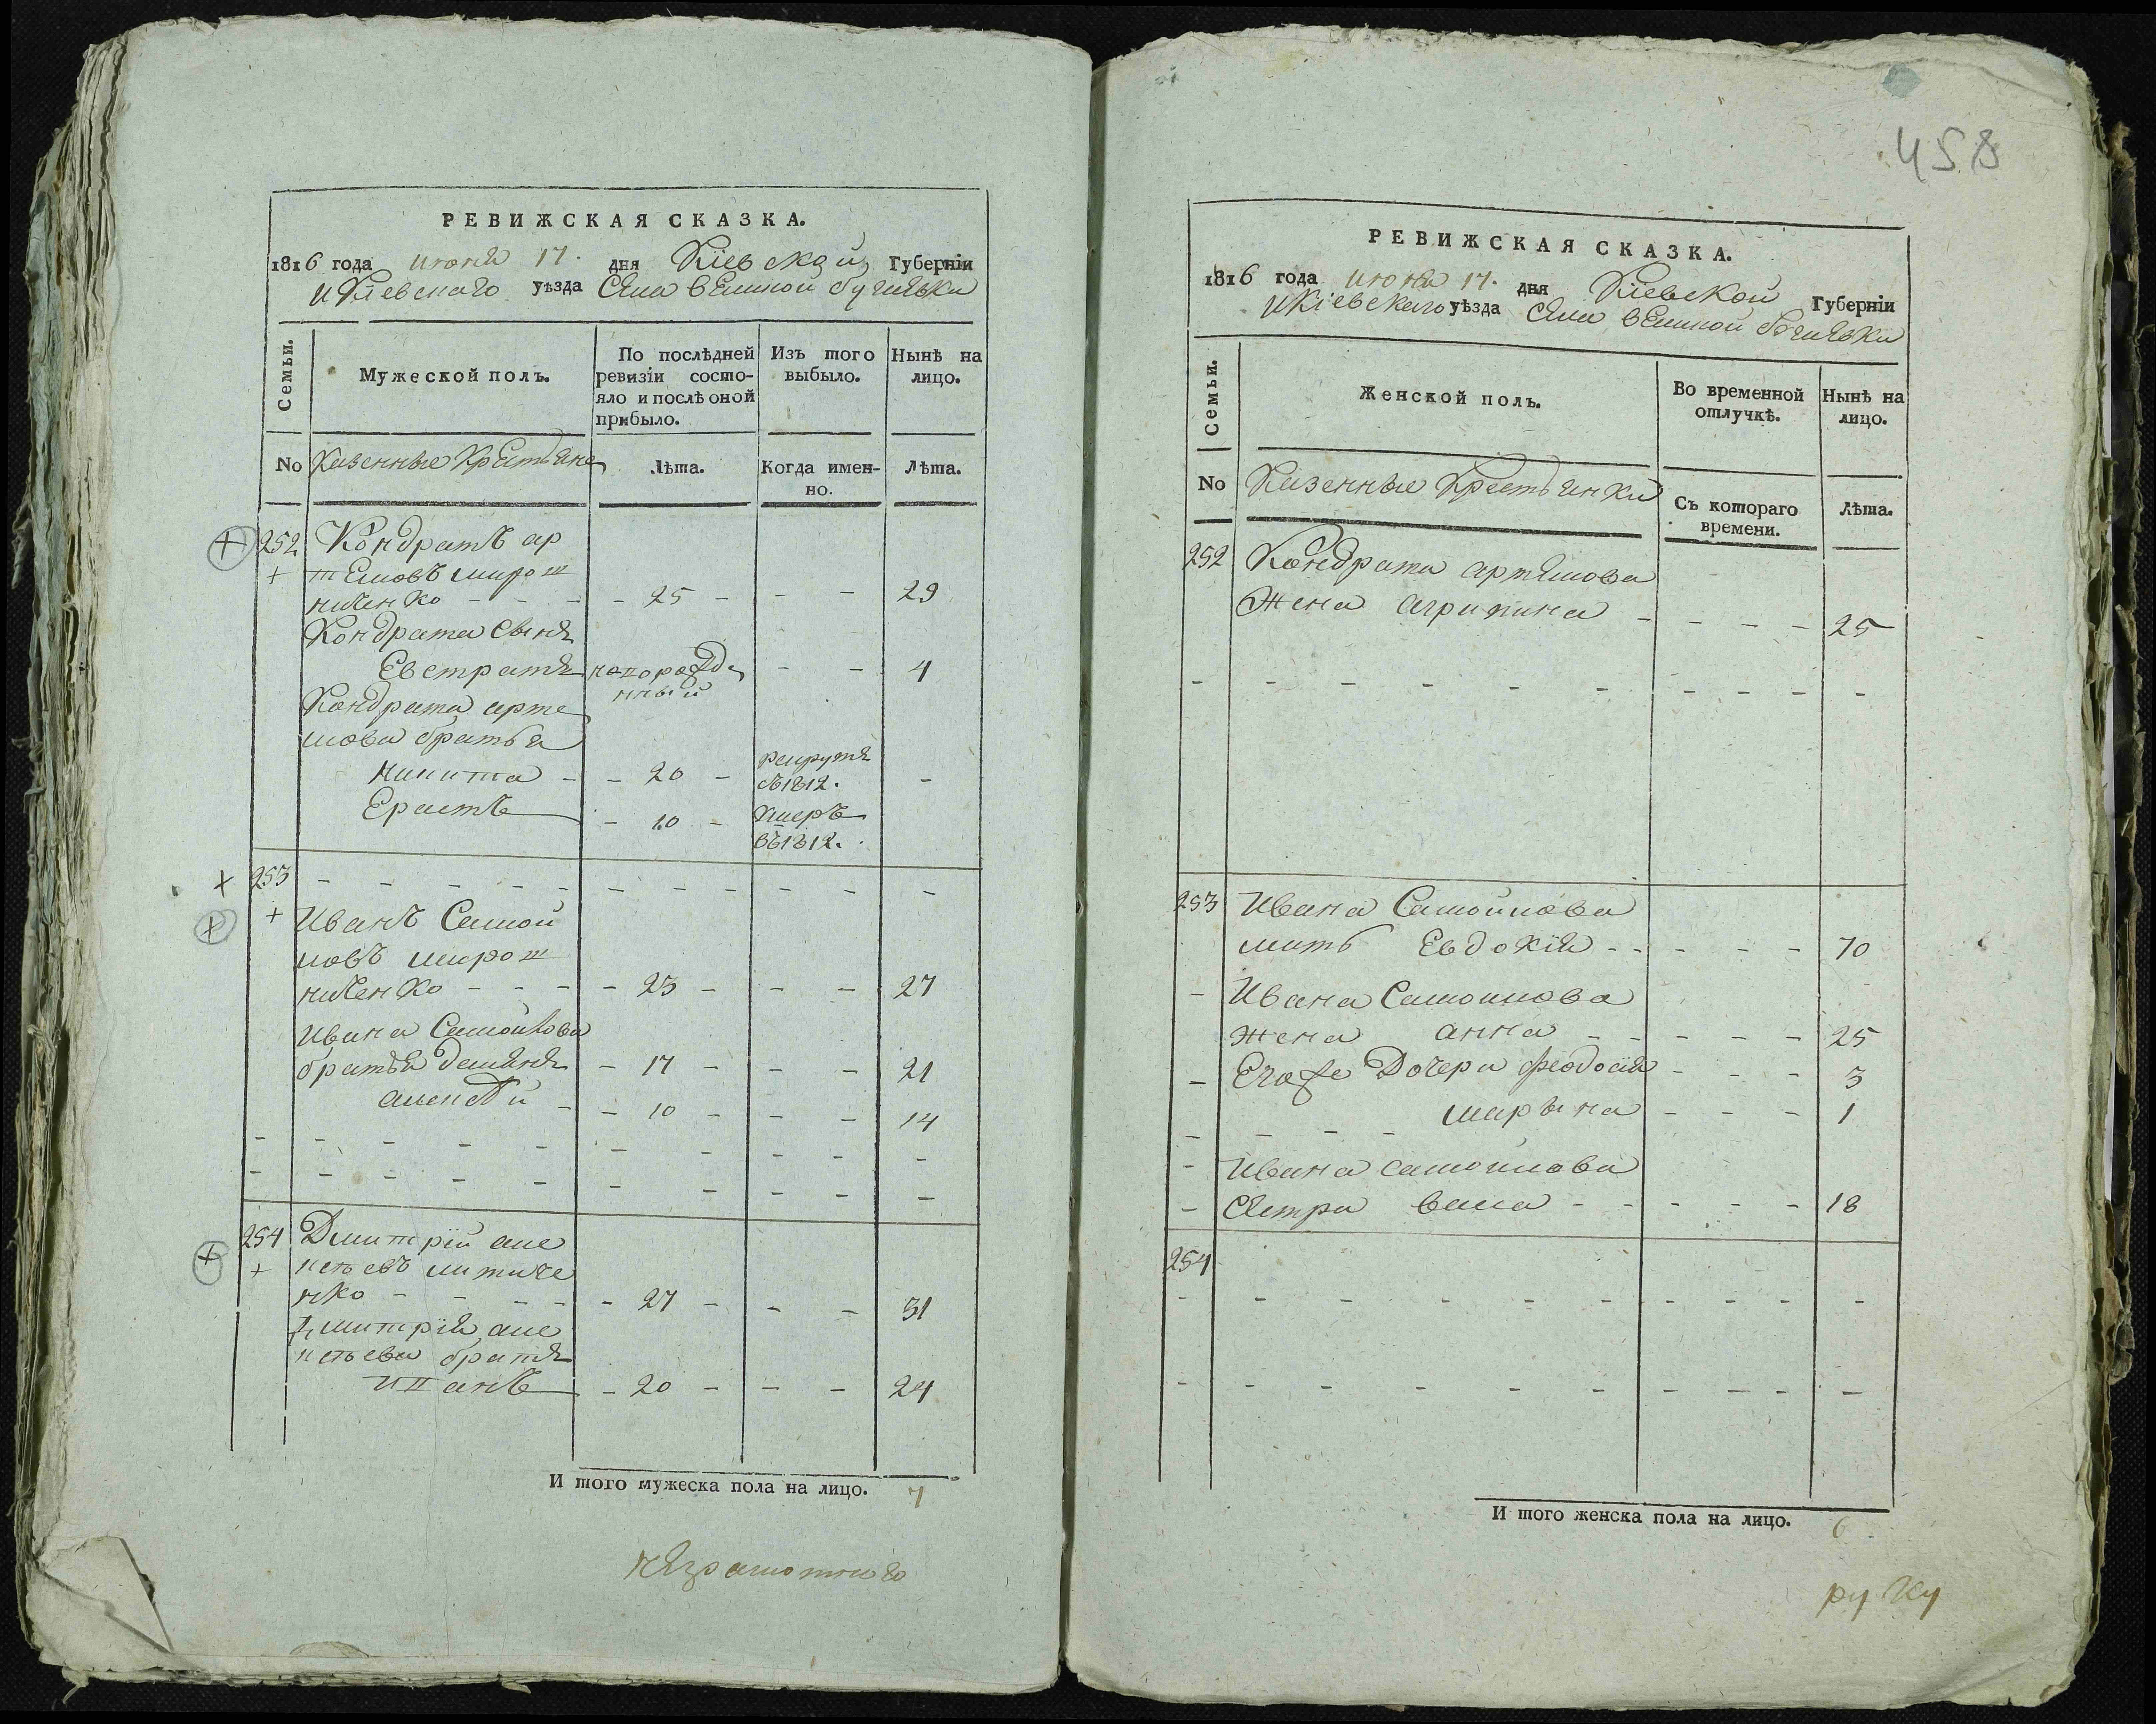 458
РЕВИЖСКАЯ СКАЗКА.
1816 года июня 17. дня Кіевской Губерніи
и Кіевскаго уѣзда Села великой бугаевки
Семьи.
Мужеской полъ.
По послѣдней
ревизіи состо-
яло и послѣ оной
прибыло.
Изъ того
выбыло.
Нынѣ на
лицо.
No Казенные Крестьяне
Лѣта.
Когда имен-
но.
Лѣта.
252 Кондратъ ар
темовъ мирош
ниченко - - - - 25 - - - 29
Кондрата сынъ
Евстратъ новорожде - - 4
нный
Кондрата арте
мова братья
никита - - 20 - рекрутъ -
въ 1812.
Ерастъ - 10 - умеръ
въ 1812.
253 - - - - - - - - - - -
Иванъ Самой
ловъ мирош
ниченко - - - - 23 - - - 27
Ивана Самойлова
братья демянъ - 17 - - - 21
алексѣй - - 10 - - - 14
- - - - - - - - - - -
- - - - - - - - - - -
254 Дмитрій але
ксѣевъ литвиче
нко - - - - - 27 - - - 31
Дмитрія але
ксѣева братъ
иванъ - 20 - - - 24
И того мужеска пола на лицо. 7
неграмотнаго
РЕВИЖСКАЯ СКАЗКА.
1816 года июня 17. дня Кіевской Губерніи
и Кіевскаго уѣзда Села великой бугаевки
Семьи.
Женской полъ.
Во временной
отлучкѣ.
Нынѣ на
лицо.
No Казенные Крестьянки
Съ котораго
времени.
Лѣта.
252 Кондрата артемова
Жена агрипина - - - - - 25
- - - - - - - - - -
253 Ивана Самойлова
мать Евдокія - - - - - 70
- Ивана Самойлова
жена анна - - - - - 25
- Егоже Дочери Феодосія - - - 3
- - - - марьяна - - - 1
- Ивана самойлова
- Сестра васа - - - - - 18
254
- - - - - - - - - -
- - - - - - - - - -
И того женска пола на лицо. 6
руку